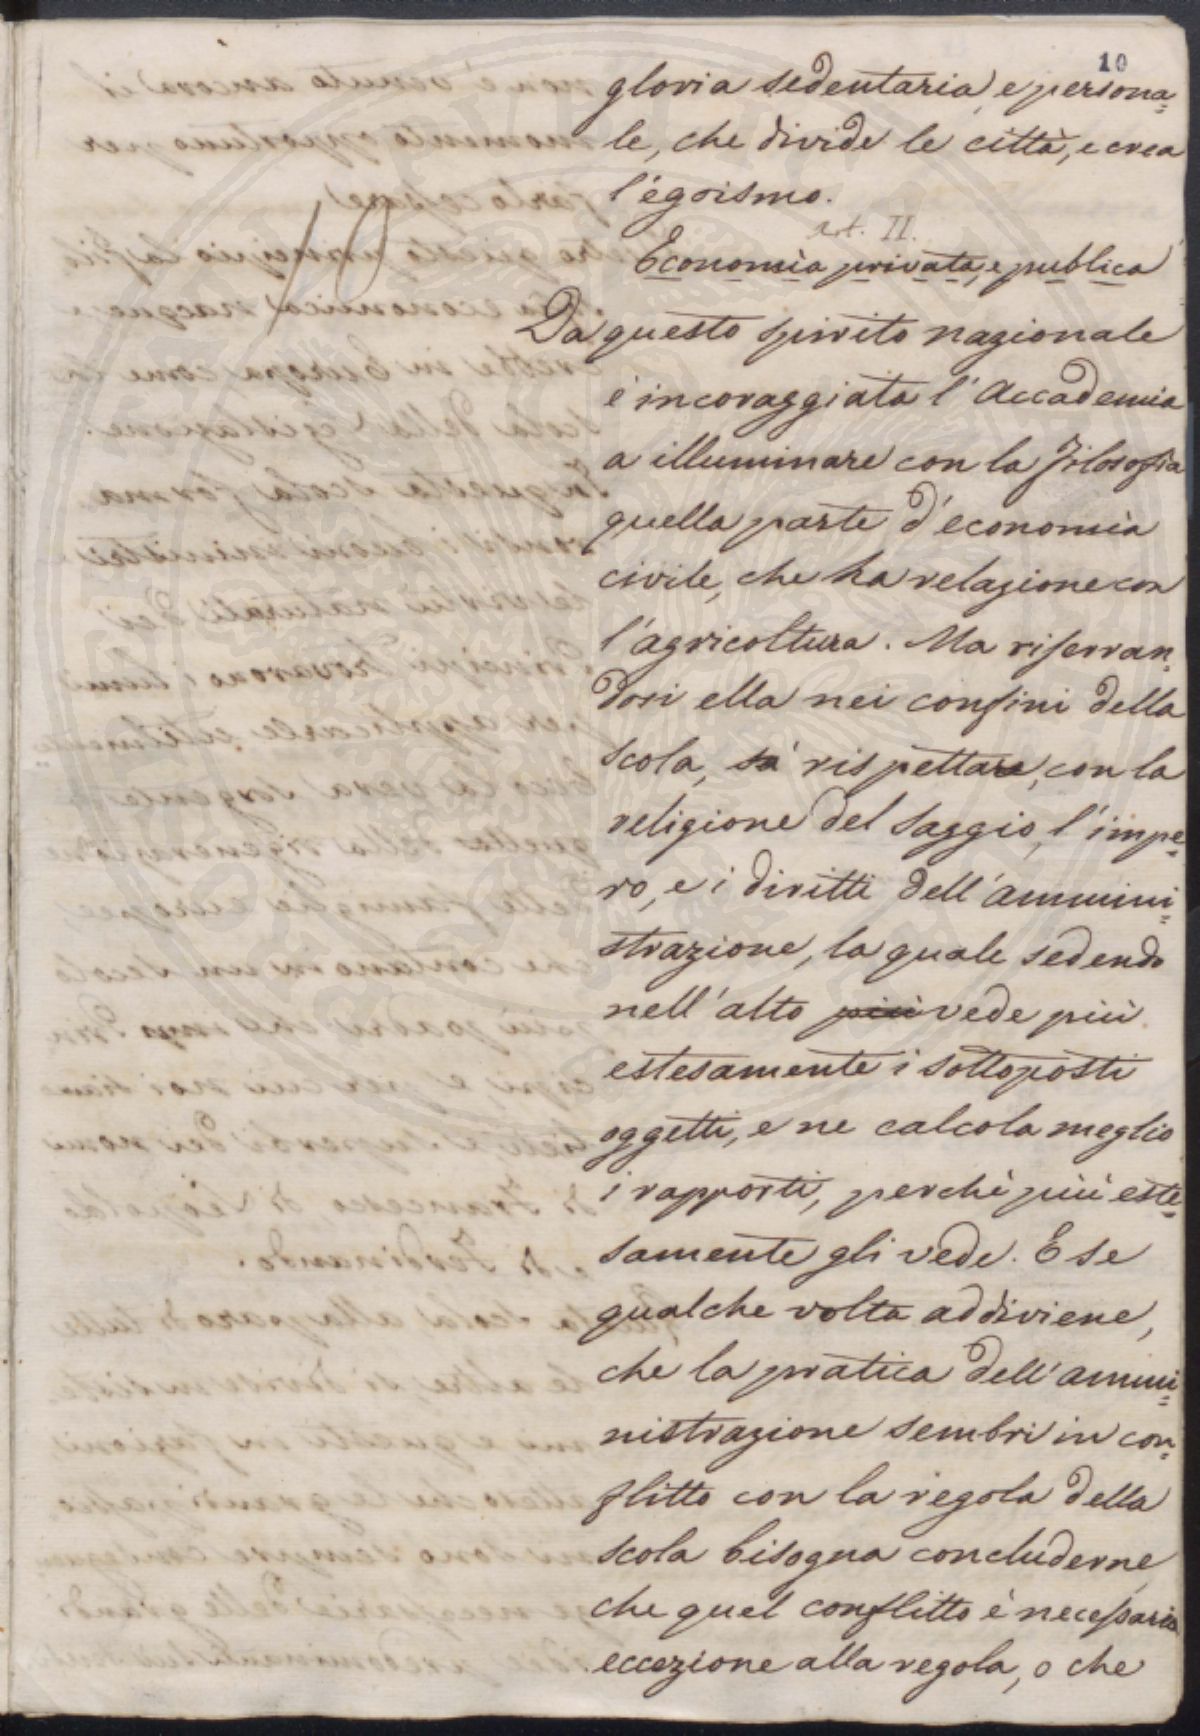 10
gloria sedentaria, e persona=
le, che divide le città, e crea
l'egoismo.
Art. II.
Economia privata, e publica
10
Da questo spirito nazionale
è incoraggiata l'Accademia
a illuminare con la Filosofia
quella parte d'economia
civile, che ha relazione con
l'agricoltura. Ma riserran=
dosi ella nei confini della
scola, sà rispettare, con la
religione del saggio, l'impe=
ro, e i diritti dell'ammini=
strazione, la quale sedendo
nell'alto più vede più
estesamente i sottoposti
oggetti, e ne calcola meglio
i rapporti, perchè più este=
samente gli vede. E se
qualche volta addiviene,
che la pratica dell'ammi=
nistrazione sembri in con=
flitto con la regola della
scola bisogna concluderne
che quel conflitto è necessaria
eccezione alla regola, o che